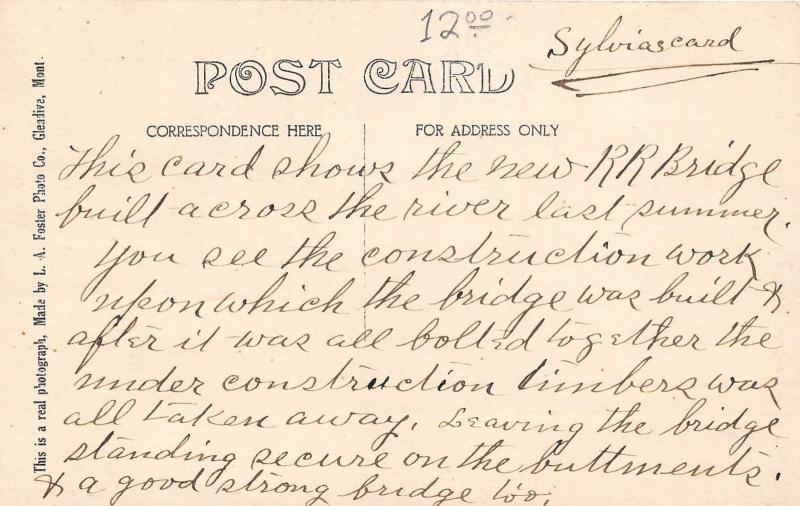 12.00
Sylviascard
POST CARD
CORRESPONDENCE HERE
FOR ADDRESS ONLY
This is a real photograph, Made by L. A. Foster Photo Co., Glendive, Mont.
This card shows the new RR Bridge
built across the river last summer.
You see the construction work
upon which the bridge was built &
after it was all bolted together the
under construction timbers was
all taken away. Leaving the bridge
standing secure on the buttments.
& a good strong bridge too.